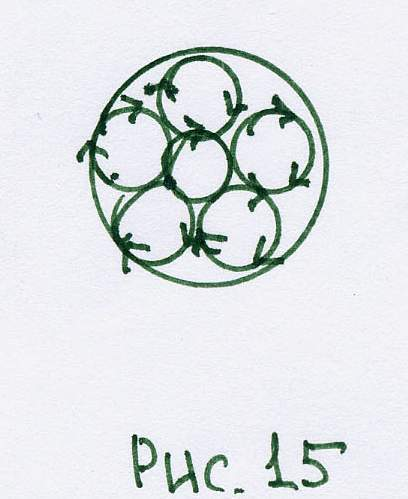 Рис. 15